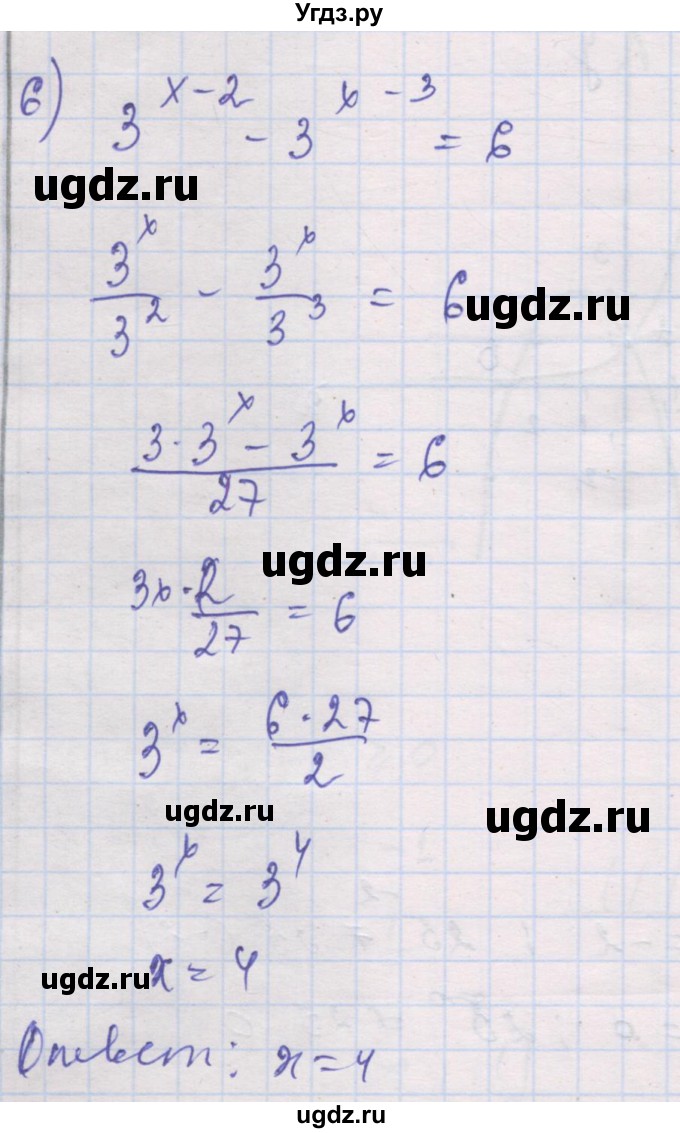 Угдз.ру
6) 3^(x-2) - 3^(x-3) = 6
ugdz.ru
3^x/3^2 - 3^x/3^3 = 6
ugdz.ru
(3·3^x - 3^x)/27 = 6
ugdz.ru
3x · 2/27 = 6
3^x = (6·27)/2
ugdz.ru
ugdz.ru
3^x = 3^4
x = 4
ugdz.ru
Ответ: x=4
ugdz.ru